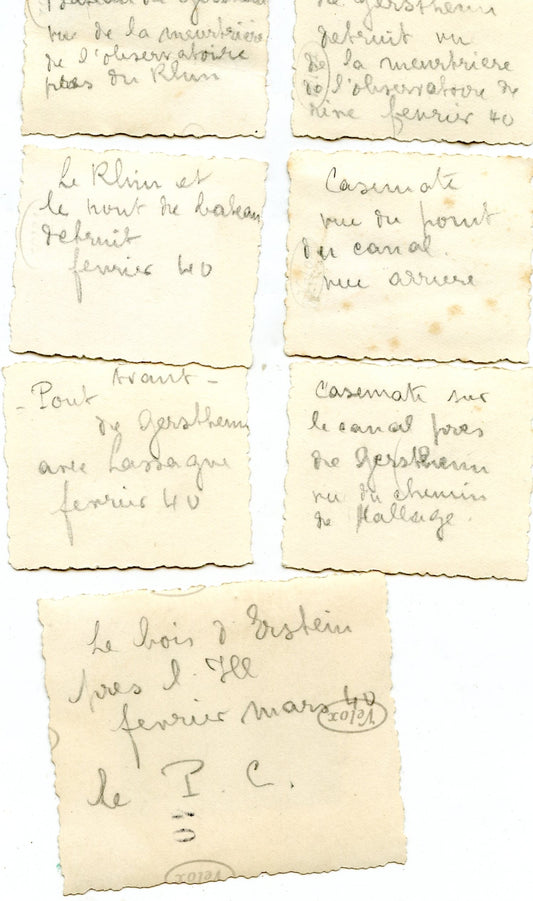 Bateau de Gerstheim
vu de la meurtriere
de l'observatoire
près du Rhin
de Gerstheim
detruit vu
de la meurtriere
de l'observatoire de
rive fevrier 40
Le Rhin et
le pont de bateau
detruit
fevrier 40
Casemate
vue du pont
du canal.
vue arriere
avant -
- Pont
de Gerstheim
avec Lassagne
fevrier 40
Casemate sur
le canal pres
de Gerstheim
vu du chemin
de Hallage.
Le bois d Erstein
pres l. Ill
fevrier mars 40
Velox
le P. C.
40
Velox